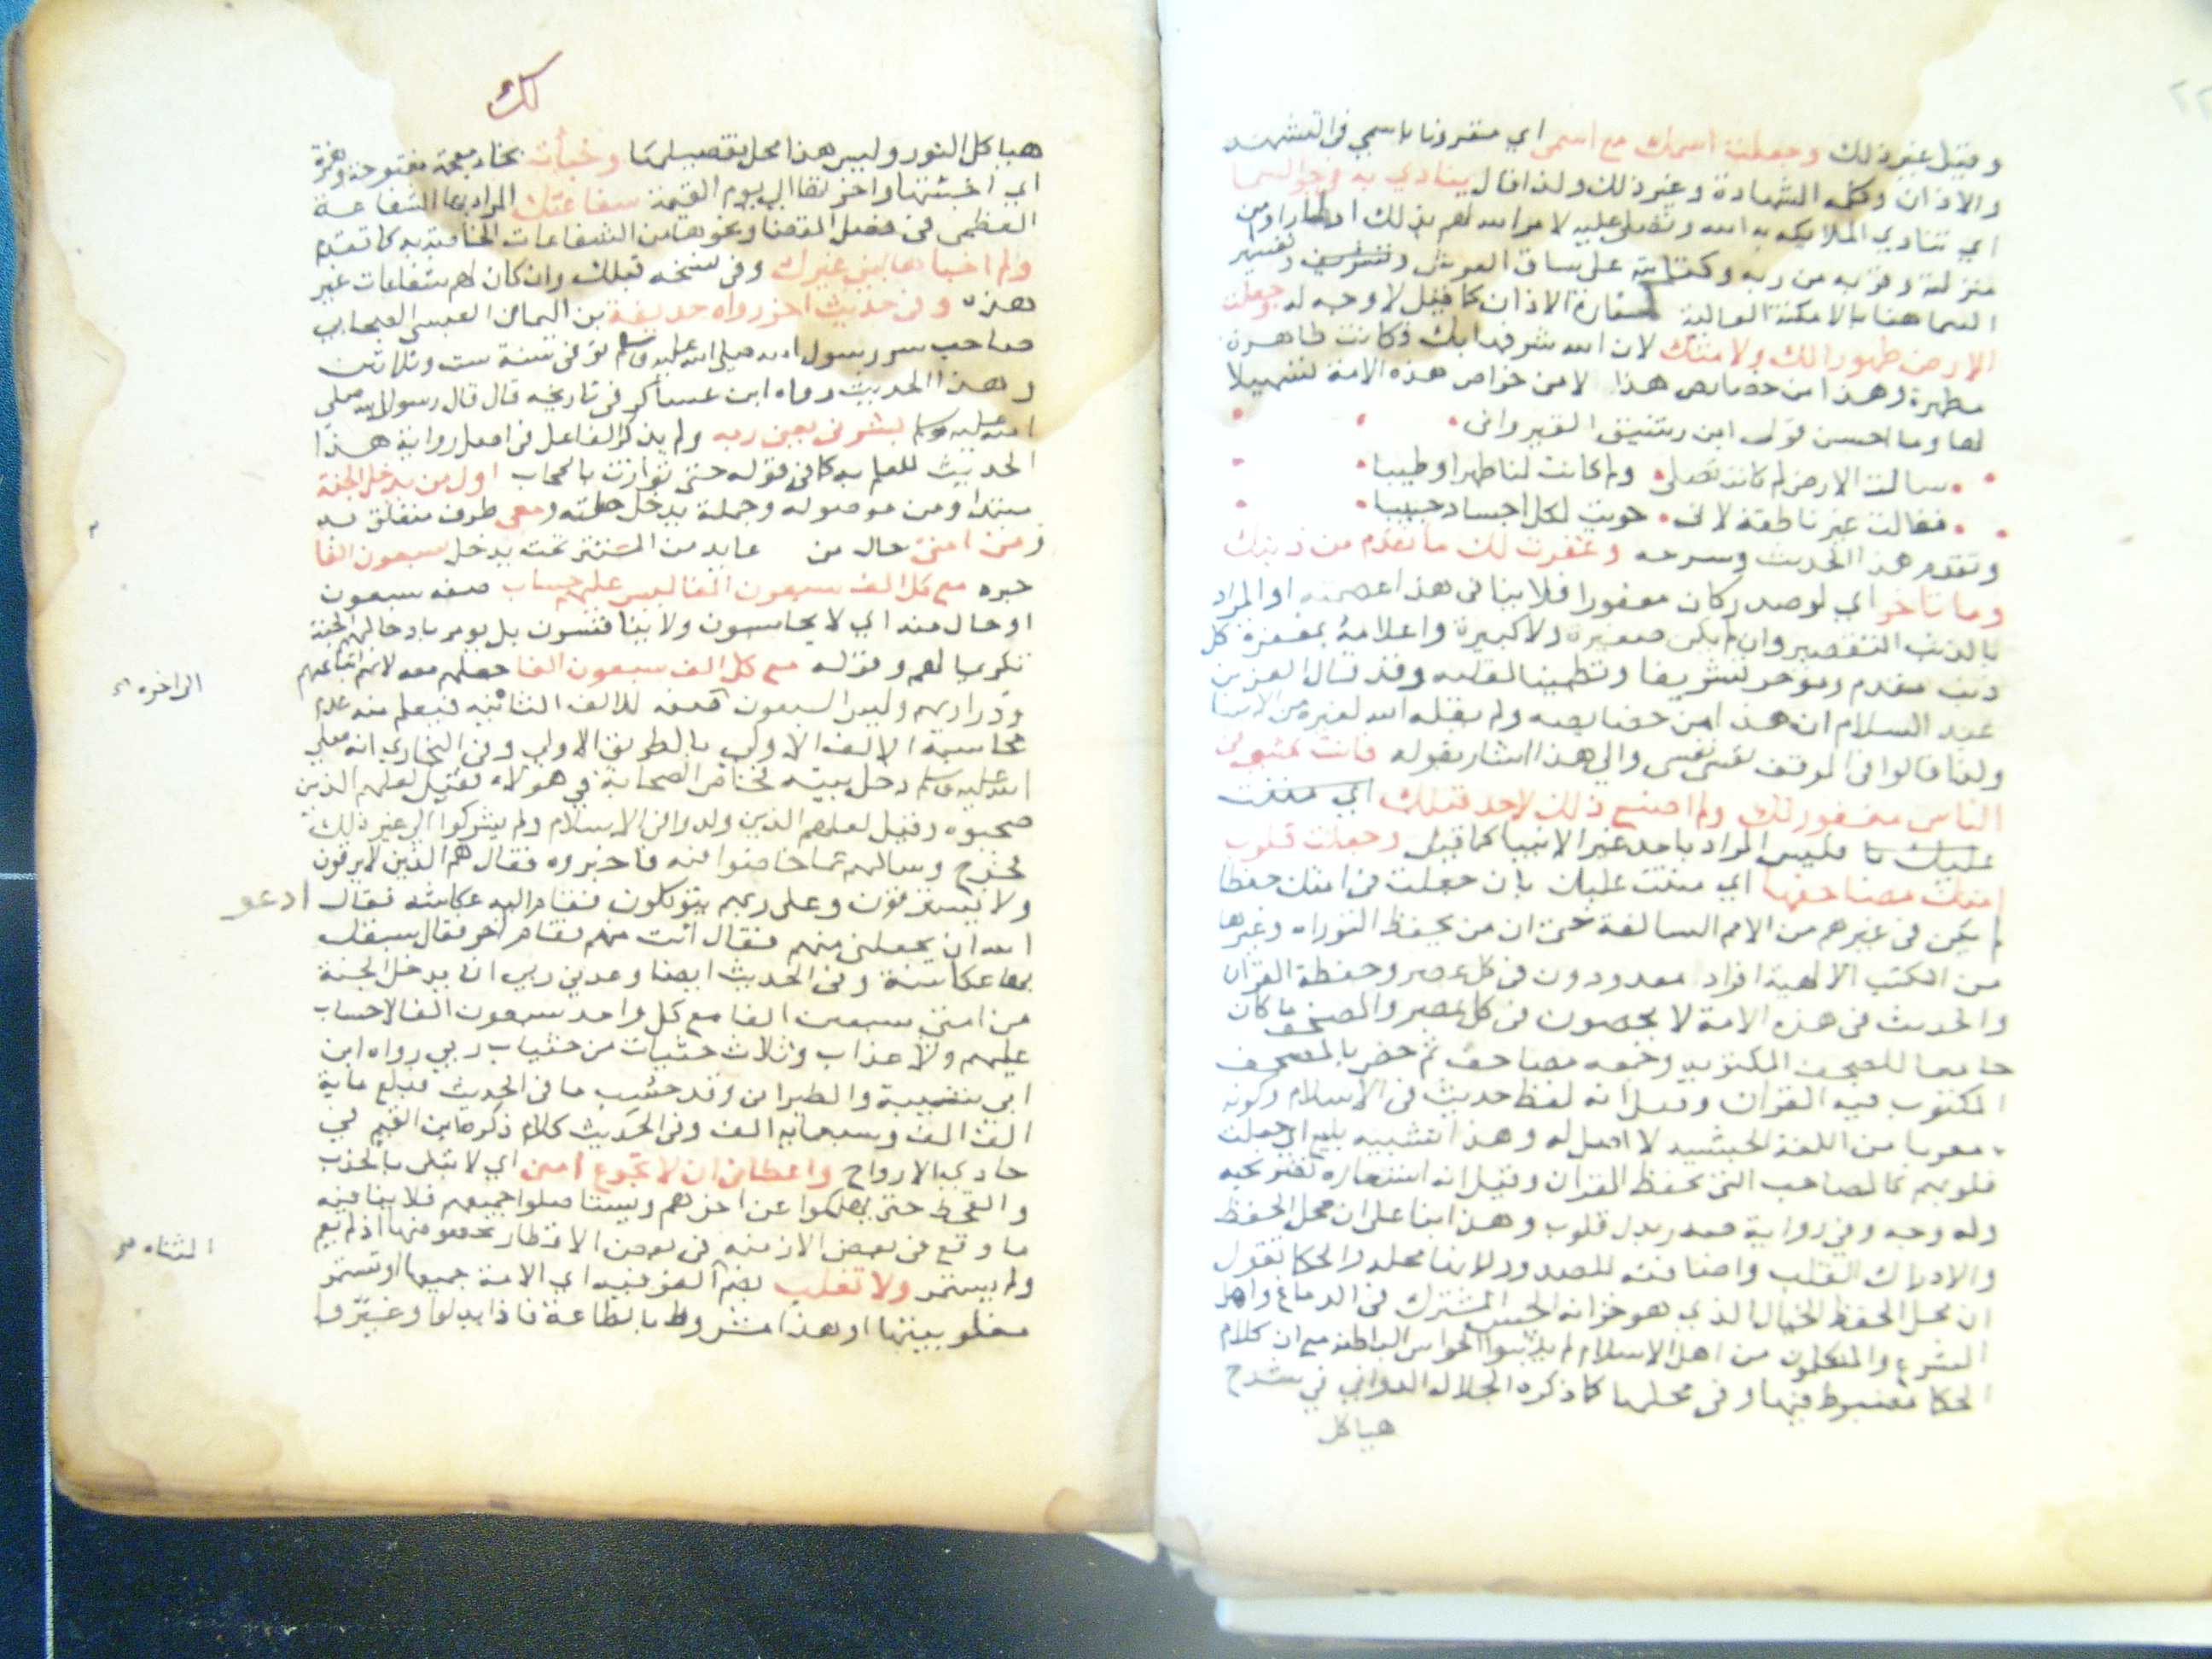 وقيل غير ذلك وجعلت اسمك مع اسمي اي مقرونا باسمي في التشهد
والاذان وكلمه الشهادة وغير ذلك ولذا قال ينادي به في جو السما
اي تنادي الملايكه به الله وتصلي عليه لامر الله لهم بذلك
منزلته وقربه من ربه وكتابته على ساق العرش
السما هنا بالامكنة العالية كمنارة الاذان كما قيل لا وجه له وجعلت
الارض طهورا لك ولامتك لان الله شرفها بك فكانت طاهرة
مطهرة وهذا من خصايص هذا لا من خواص هذه الامة تسهيلا
لها وما احسن قول ابن رشيق القيرواني
سالت الارض لم كانت تصلى ولم كانت لنا طهرا وطيبا
فقالت غير ناطقة لاني حويت لكل اجساد حبيبا
وتقدم هذا الحديث وشرحه وغفرت لك ما تقدم من ذنبك
وما تاخر اي لو صدر كان مغفورا فلا ينافي هذا عصمته او المراد
بالذنب التقصير وان لم يكن صغيرة ولا كبيرة واعلامه بمغفرة كل
ذنب مقدم وموخر تشريفا وتطمينا لقلبه وقد قال العز بن
عبد السلام ان هذا من خصايصه ولم يقله الله لغيره من الانبيا
ولذا قالوا في الموقف نفسي نفسي والي هذا اشار بقوله فانت تمشي في
الناس مغفور لك ولم اصنع ذلك لاحد قبلك اي مننت
عليك فليس المراد باحد غير الانبيا كما قيل وجعلت قلوب
امتك مصاحفها اي مننت عليك بان جعلت في امتك حفظا
لم يكن في غيرهم من الامم السالفة حتى ان من يحفظ التوراه وغيرها
من الكتب الالهية افراد معدودون في كل عصر وحفظة القران
والحديث في هذه الامة لا يحصون في كل عصر والمصحف ما كان
جامعا للصحف المكتوبه وجمعه مصاحف ثم خص بالمصحف
المكتوب فيه القران وقيل انه لفظ حديث في الاسلام وكونه
معربا من اللغة الحبشيه لا اصل له وهذا تشبيه بليغ اي جعلت
قلوبهم كالمصاحف التي تحفظ القران وقيل انه استعاره تصريحيه
وله وجه وفي رواية صدر بدل قلوب وهذا بنا على ان محل الحفظ
والادراك القلب واضافته للصدور لانها محله والحكما تقول
ان محل الحفظ الخيال الذي هو خزانه الحس المشترك في الدماغ واهل
الشرع والمتكلمون من اهل الاسلام لم يثبتوا الحواس الباطنه مع ان كلام
الحكما مضبوط فيها وفي محلها كما ذكره الجلال الدواني في شرح
هياكل
هياكل النور وليس هذا محل تفصيلها وخبأت بخاء معجمة مفتوحة وهمزة
اي اخبئتها واخرتها الي يوم القيمة شفاعتك المراد بها الشفاعة
العظمى في فصل القضا ونحوها من الشفاعات الخاصة به كما تقدم
ولم اخباها لنبي غيرك وفي نسخه قبلك وان كان لهم شفاعات غير
هذه وفي حديث اخر رواه حذيفة بن اليمان العبسي الصحابي
صاحب سر رسول الله صلي الله عليه وسلم توفي سنة ست وثلاثين
وهذا الحديث رواه ابن عساكر في تاريخه قال قال رسول الله صلي
الله عليه وسلم بشرني يعني ربه ولم يذكر الفاعل في اصل رواية هذا
الحديث للعلم به كما في قوله حتى توارت بالحجاب اول من يدخل الجنة
مبتدا ومن موصوله وجملة يدخل صلته ومعي ظرف متعلق به
ومن امتي حال من عايد من المستتر تحت يدخل سبعون الفا
خبره مع كل الف سبعون الفا ليس عليهم حساب صفه سبعون
او حال منه اي لا يحاسبون ولا يناقشون بل يومر بادخالهم الجنة
تكريما لهم وقوله مع كل الف سبعون الفا جعلهم معه لانهم اتباعهم
وذراريهم وليس السبعون صفه للالف الثانيه فيعلم منه عدم
محاسبة الالف الاولي بالطريق الاولي وفي البخاري انه صلي
الله عليه وسلم دخل بيته فخاض الصحابة في هولاء فقيل لعلهم الذين
صحبوه وقيل لعلهم الذين ولدوا في الاسلام ولم يشركوا الي غير ذلك
فخرج وسالهم عما خاضوا فيه فاخبروه فقال هم الذين لا يرقون
ولا يسترقون وعلى ربهم يتوكلون فقام اليه عكاشه فقال ادعو
الله ان يجعلني منهم فقال انت منهم فقام اخر فقال سبقك
بها عكاشة وفي الحديث ايضا وعدني ربي ان يدخل الجنة
من امتي سبعين الفا مع كل واحد سبعون الفا لا حساب
عليهم ولا عذاب وثلاث حثيات من حثيات ربي رواه ابن
ابي شيبة والطبراني وقد حسب ما في الحديث فبلغ ماية
الف الف وسبعمايه الف وفي الحديث كلام ذكره ابن القيم في
حادي الارواح واعطاني ان لا تجوع امتي اي لا تبتلى بالجدب
والقحط حتى يهلكوا عن اخرهم ويستاصلوا جميعهم فلا ينافيه
ما وقع في بعض الازمنه في بعض الاقطار
ولم يستمر ولا تغلب بضم الفوقيه اي الامة جميعها او تستمر
مغلوبيتها او هذا مشروط بالطاعة فاذا بدلوا وغيروا